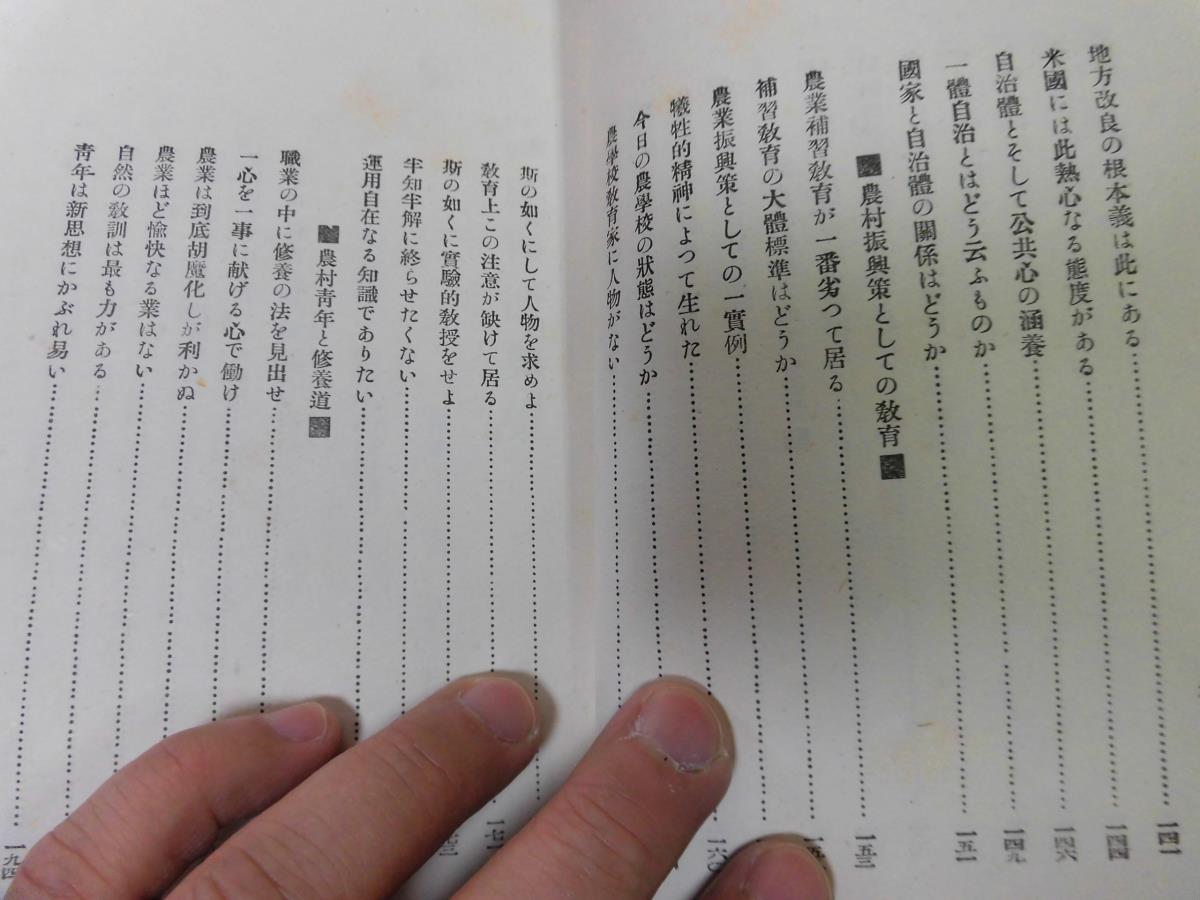 地方改良の根本義は此にある……………一四一
米國には此熱心なる態度がある……………一四四
自治體とそして公共心の涵養……………一四六
一體自治とはどう云ふものか……………一四九
國家と自治體の關係はどうか……………一五一
■農村振興策としての敎育■
農業補習敎育が一番劣つて居る……………一五三
補習敎育の大體標準はどうか……………
農業振興策としての一實例……………
犧牲的精神によつて生れた……………一六〇
今日の農學校の狀態はどうか……………
農學校敎育家に人物がない……………
斯の如くにして人物を求めよ……………
敎育上この注意が缺けて居る……………一七一
斯の如くに實驗的敎授をせよ……………
半知半解に終らせたくない……………
運用自在なる知識でありたい……………
■農村靑年と修養道■
職業の中に修養の法を見出せ……………
一心を一事に献げる心で働け……………
農業は到底胡魔化しが利かぬ……………
農業ほど愉快なる業はない……………
自然の敎訓は最も力がある……………
靑年は新思想にかぶれ易い……………一九四